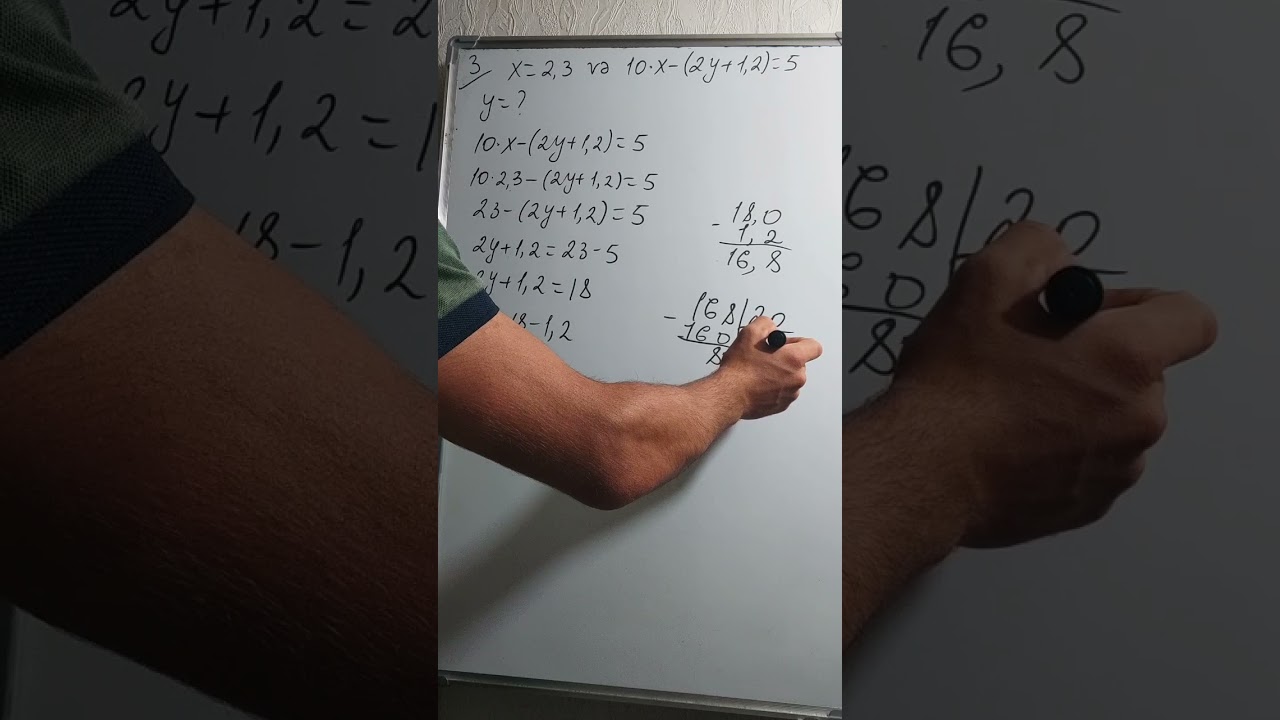 3 x=2,3 və 10·x-(2y+1,2)=5
y=?
10·x-(2y+1,2)=5
10·2,3-(2y+1,2)=5
23-(2y+1,2)=5
2y+1,2=23-5
2y+1,2=18
18-1,2
-18,0
1,2
16,8
-168|20
160
8